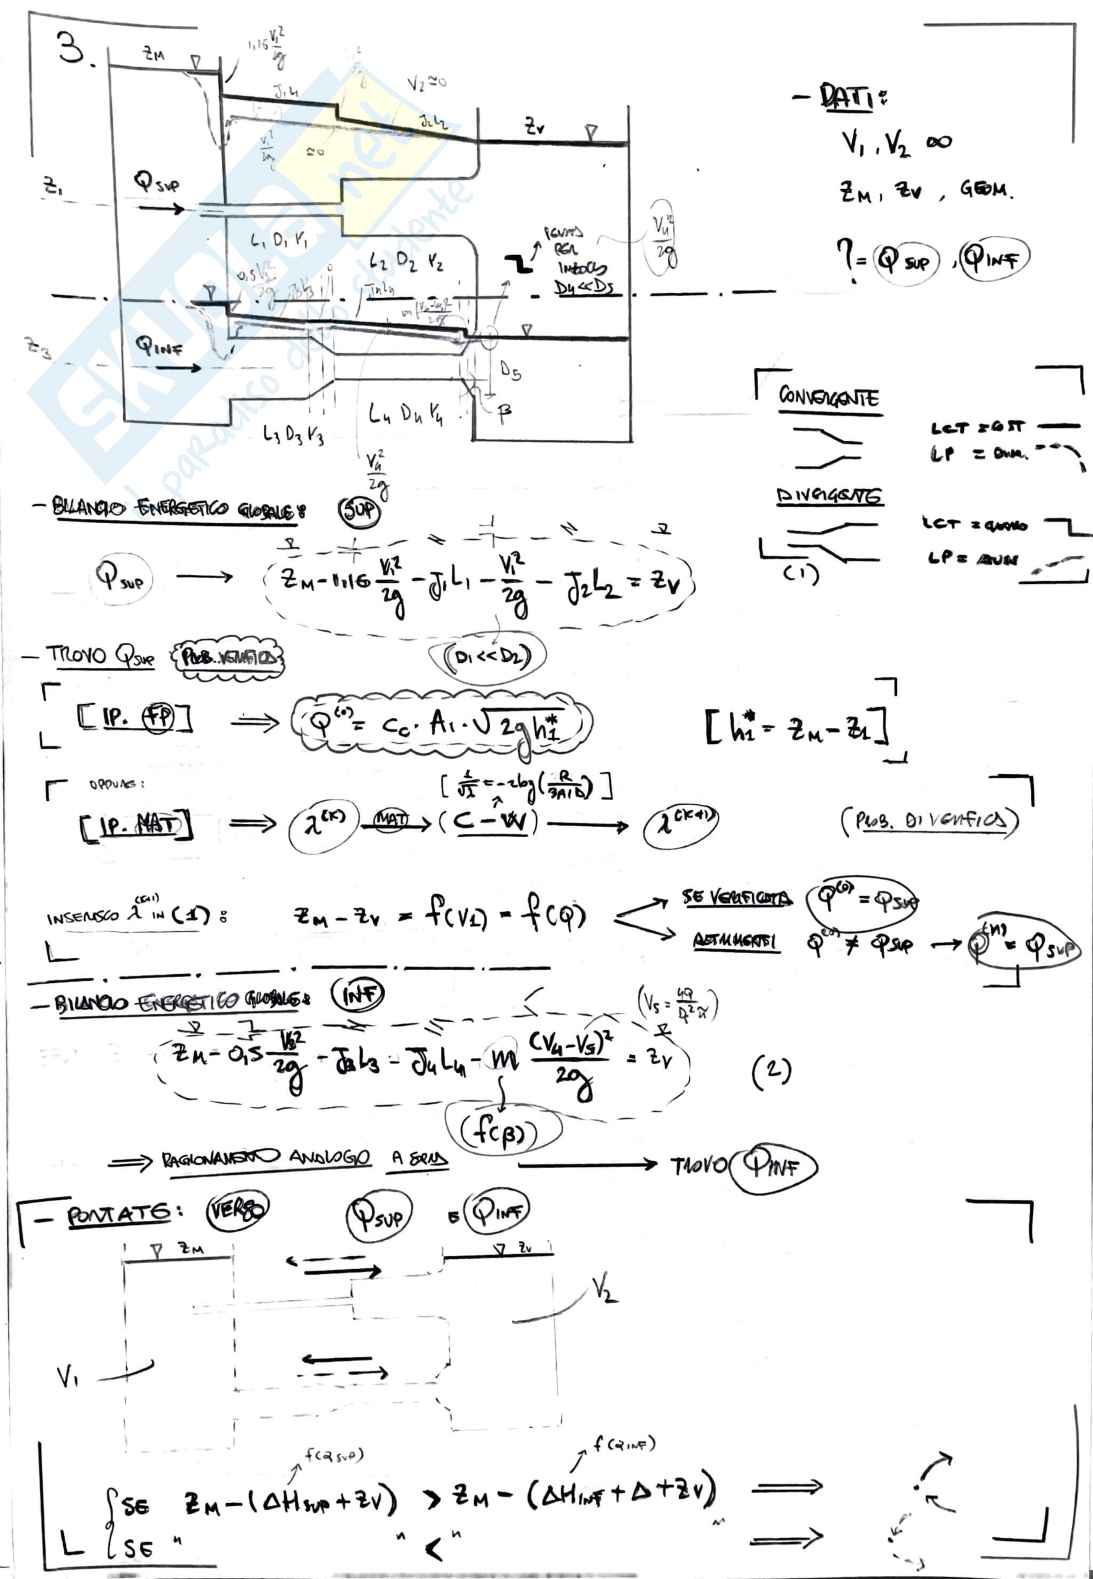 3.
Z_M
1,16 V_1²/2g
J_1L_1
V_2 ≃ 0
J_2L_2
Z_V
V_1²/2g
≃0
Z_1
Q_SUP
L_1 D_1 V_1
L_2 D_2 V_2
PERDITA
PER
IMBOCCO
D_4 << D_5
V_4²/2g
0,5 V_3²/2g
J_3L_3
J_4L_4
m (V_4-V_5)²/2g
Z_3
Q_INF
D_5
L_3 D_3 V_3
L_4 D_4 V_4
β
V_4²/2g
- DATI:
V_1, V_2 ∞
Z_M, Z_V, GEOM.
? = Q_SUP, Q_INF
CONVERGENTE
LCT = COST
LP = DIM.
DIVERGENTE
LCT =
LP = AUM
- BILANCIO ENERGETICO GLOBALE: SUP
Q_SUP → Z_M - 1,16 V_1²/2g - J_1L_1 - V_1²/2g - J_2L_2 = Z_V (1)
(D_1 << D_2)
- TROVO Q_SUP PROB. VERIFICA
[IP. FP] ⇒ Q^(0) = C_c · A_1 · √2gh_1* [h_1* = Z_M - Z_1]
OPPURE:
[IP. MAT] ⇒ λ^(K) MAT → (C-W) → λ^(K+1) (PROB. DI VERIFICA)
INSERISCO λ^(K+1) IN (1): Z_M - Z_V = f(V_1) = f(Q)
SE VERIFICATA Q^(0) = Q_SUP
ALTRIMENTI Q^(0) ≠ Q_SUP → Q^(N) = Q_SUP
- BILANCIO ENERGETICO GLOBALE: INF
(V_5 = 4Q/D²π)
Z_M - 0,5 V_3²/2g - J_3L_3 - J_4L_4 - m (V_4-V_5)²/2g = Z_V (2)
(f(β))
⇒ RAGIONAMENTO ANALOGO A → TROVO Q_INF
- PORTATE: VERSO Q_SUP E Q_INF
Z_M
Z_V
V_2
V_1
f(Q_SUP)
f(Q_INF)
SE Z_M - (ΔH_SUP + Z_V) > Z_M - (ΔH_INF + Δ + Z_V) ⇒
SE " " < " " ⇒